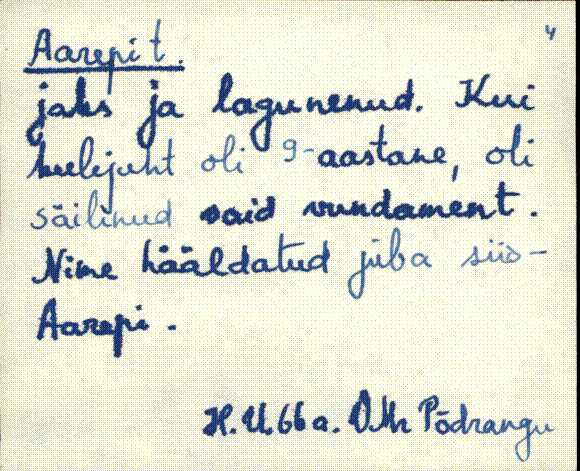 4
Aarepit.
jaks ja lagunenud. Kui
keelejuht oli 9-aastane, oli
säilinud vaid vundament.
Nime hääldatud juba siis-
Aarepi.
H.U. 66 a. VMr Põdrangu